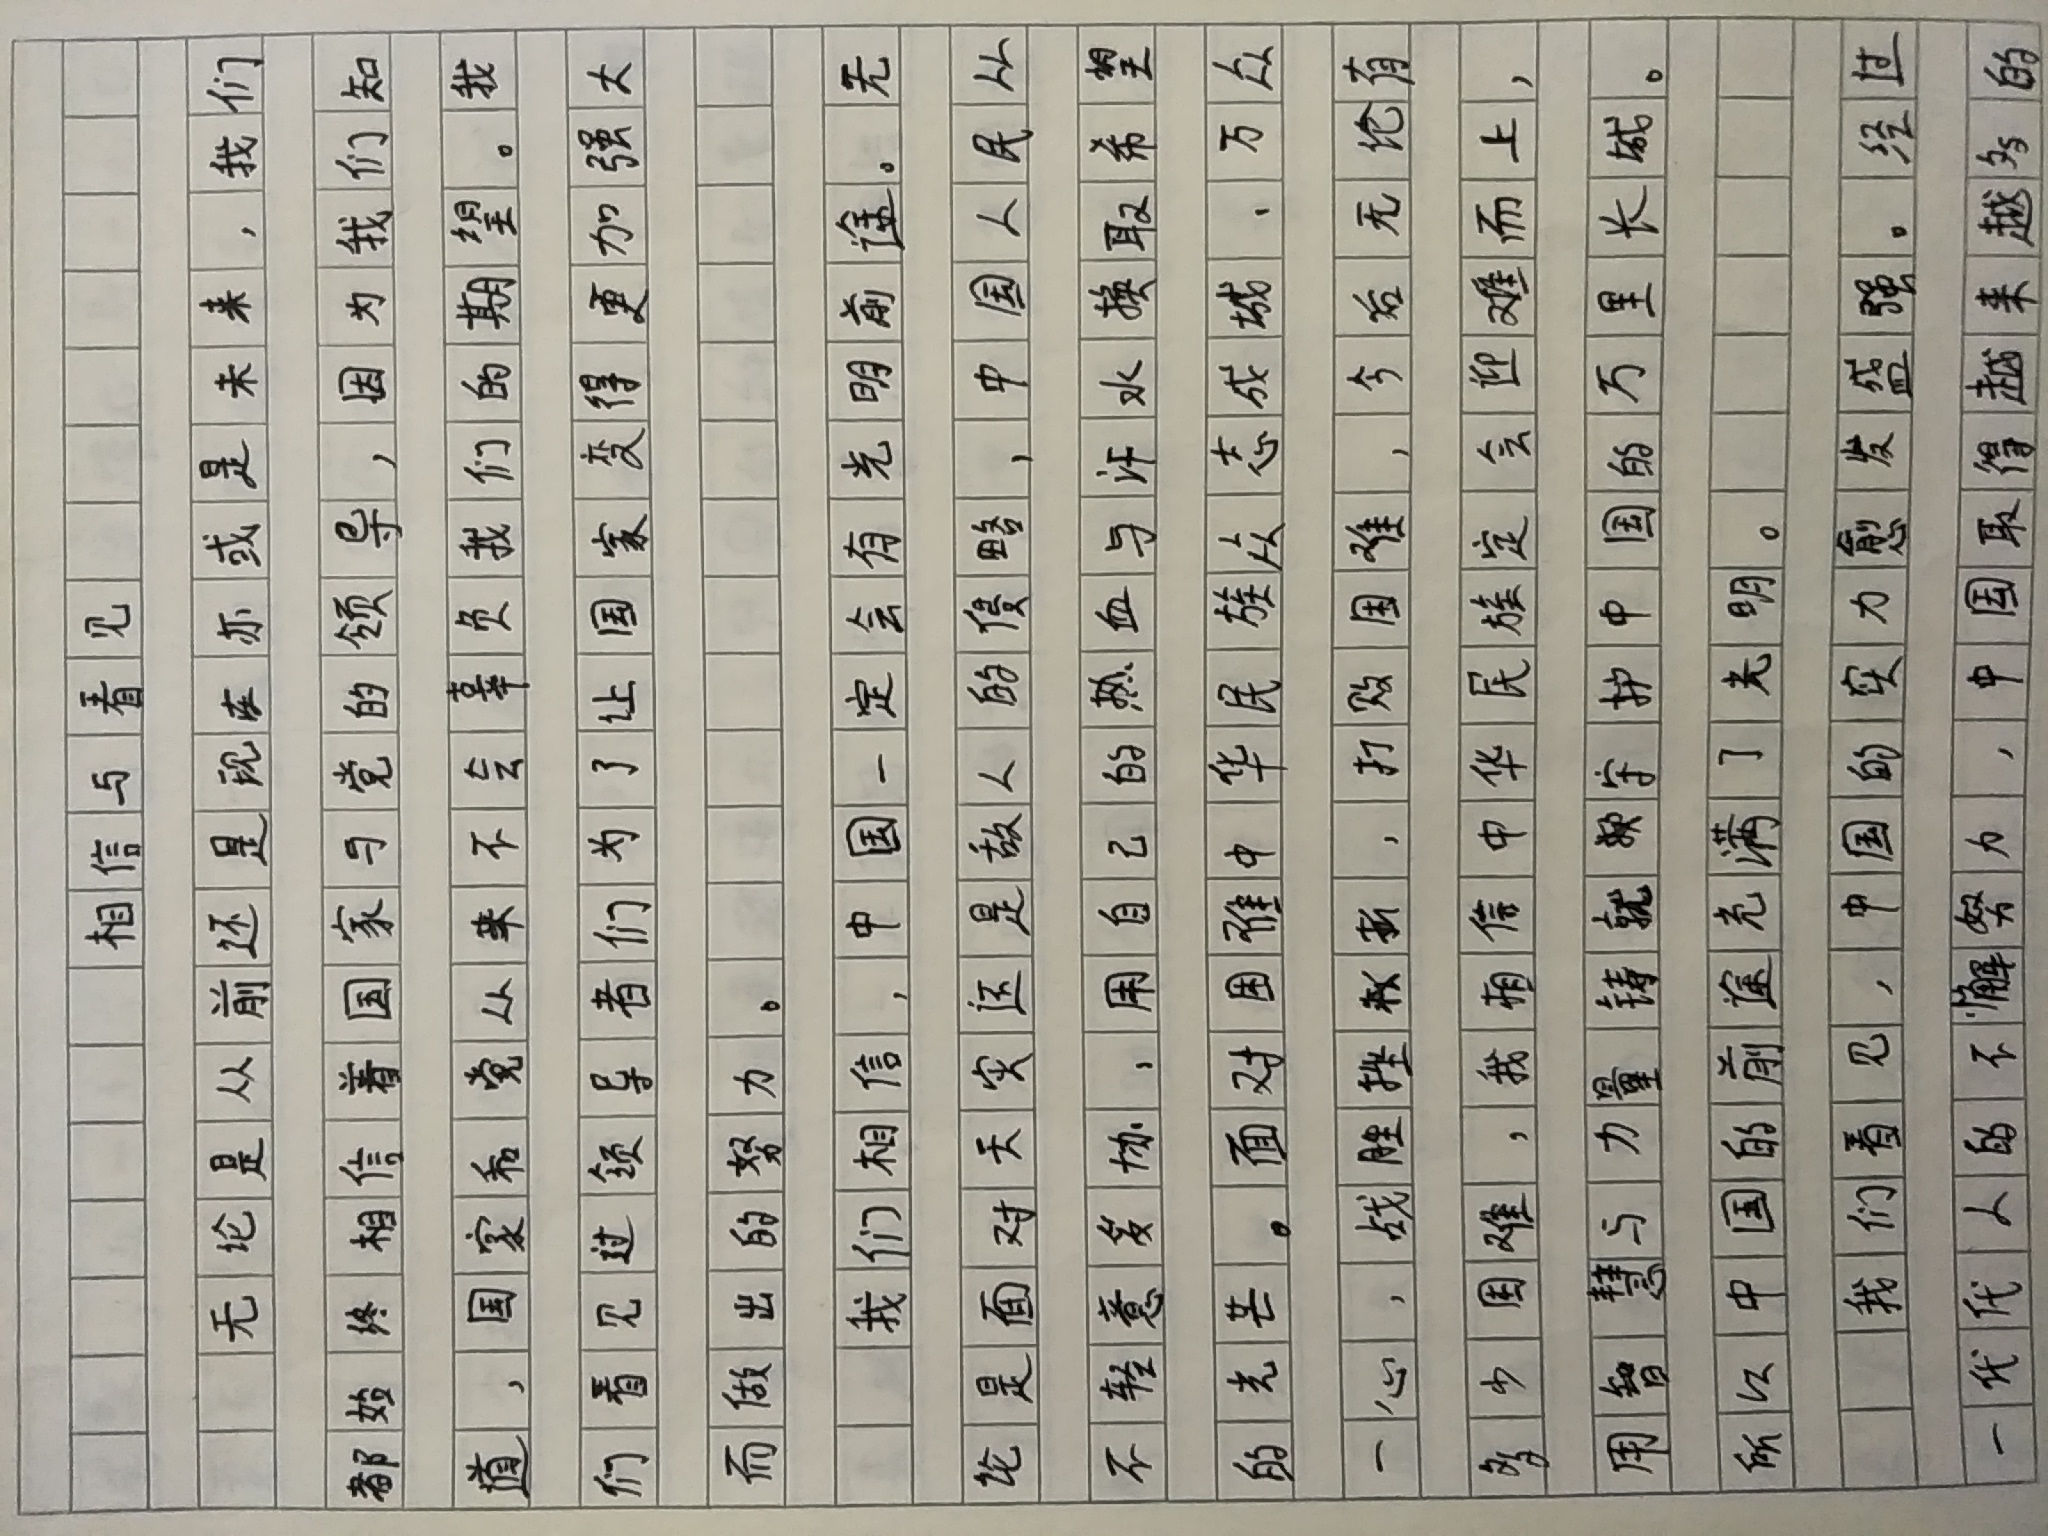 相信与看见
无论是从前还是现在亦或是未来，我们
都始终相信着国家与党的领导，因为我们知
道，国家和党从来不会辜负我们的期望。我
们看见过领导者们为了让国家变得更加强大
而做出的努力。
我们相信，中国一定会有光明前途。无
论是面对天灾还是敌人的侵略，中国人民从
不轻意妥协、用自己的热血与汗水换取希望
的光芒。面对困难中华民族众志成城、万众
一心，战胜挫折，打败困难，今后无论有
多少困难，我相信中华民族定会迎难而上，
用智慧与力量铸就守护中国的万里长城。
所以中国的前途充满了光明。
我们看见，中国的实力愈发盛强。经过
一代代人的不懈努力，中国取得越来越多的